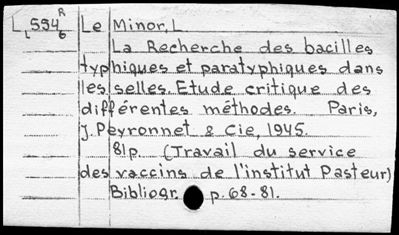 L 554 R 6 Le Minor, L
La Recherche des bacilles
typhiques et paratyphiques dans
les selles. Etude critique des
différentes méthodes. Paris,
J. Peyronnet & Cie, 1945.
81p. (Travail du service
des vaccins de l'institut Pasteur)
Bibliogr. p. 68-81.